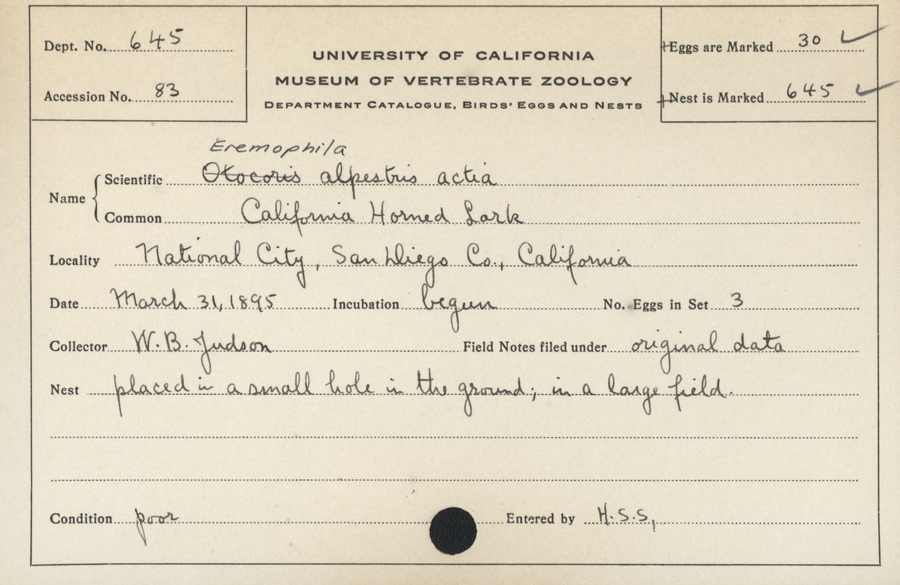 Dept. No. 645
Accession No. 83
UNIVERSITY OF CALIFORNIA
MUSEUM OF VERTEBRATE ZOOLOGY
DEPARTMENT CATALOGUE, BIRDS' EGGS AND NESTS
Eggs are Marked 30 ✓
Nest is Marked 645 ✓
Eremophila
Name { Scientific Otocoris alpestris actia
Common California Horned Lark
Locality National City, San Diego Co., California
Date March 31, 1895 Incubation begun No. Eggs in Set 3
Collector W.B. Judson Field Notes filed under original data
Nest placed in a small hole in the ground; in a large field.
Condition poor Entered by H.S.S.